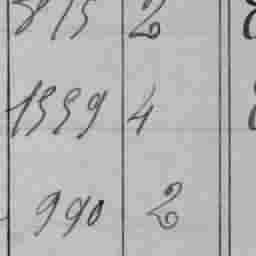 815 2
1559 4
990 2